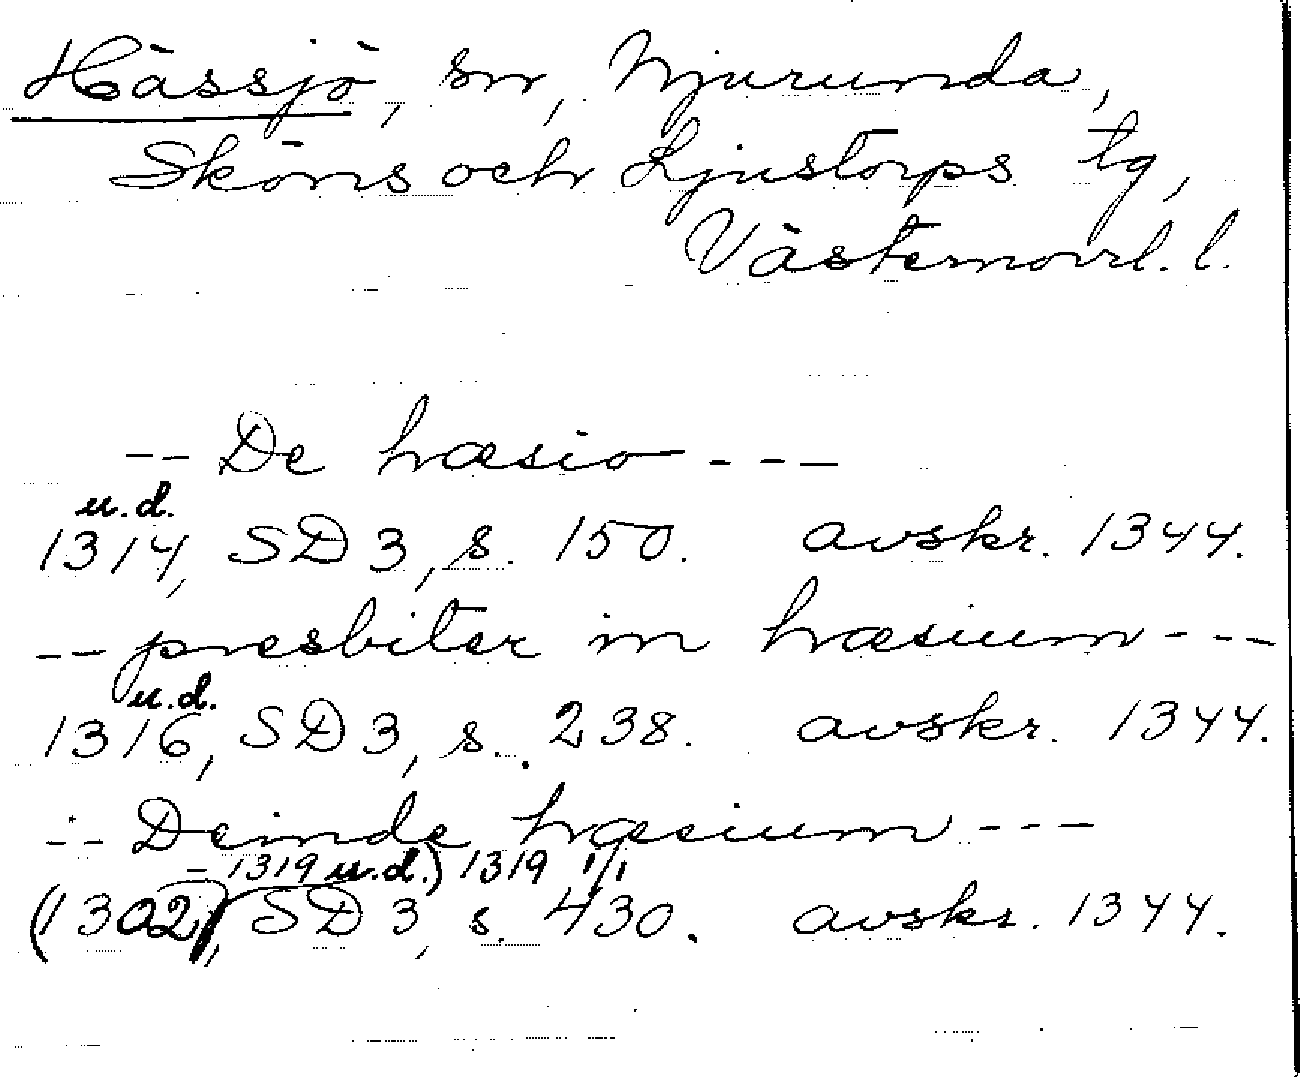 Hässjö, sn, Njurunda,
Sköns och Ljustorps tg,
Västernorrl. l.
-- De hæsio ---
u.d.
1314, SD 3, s. 150. avskr. 1344.
-- presbiter in hæsium ---
u.d.
1316, SD 3, s. 238. avskr. 1344.
-- Deinde hæsium ---
- 1319 u.d.) 1319 1/1
(1302), SD 3, s. 430. avskr. 1344.